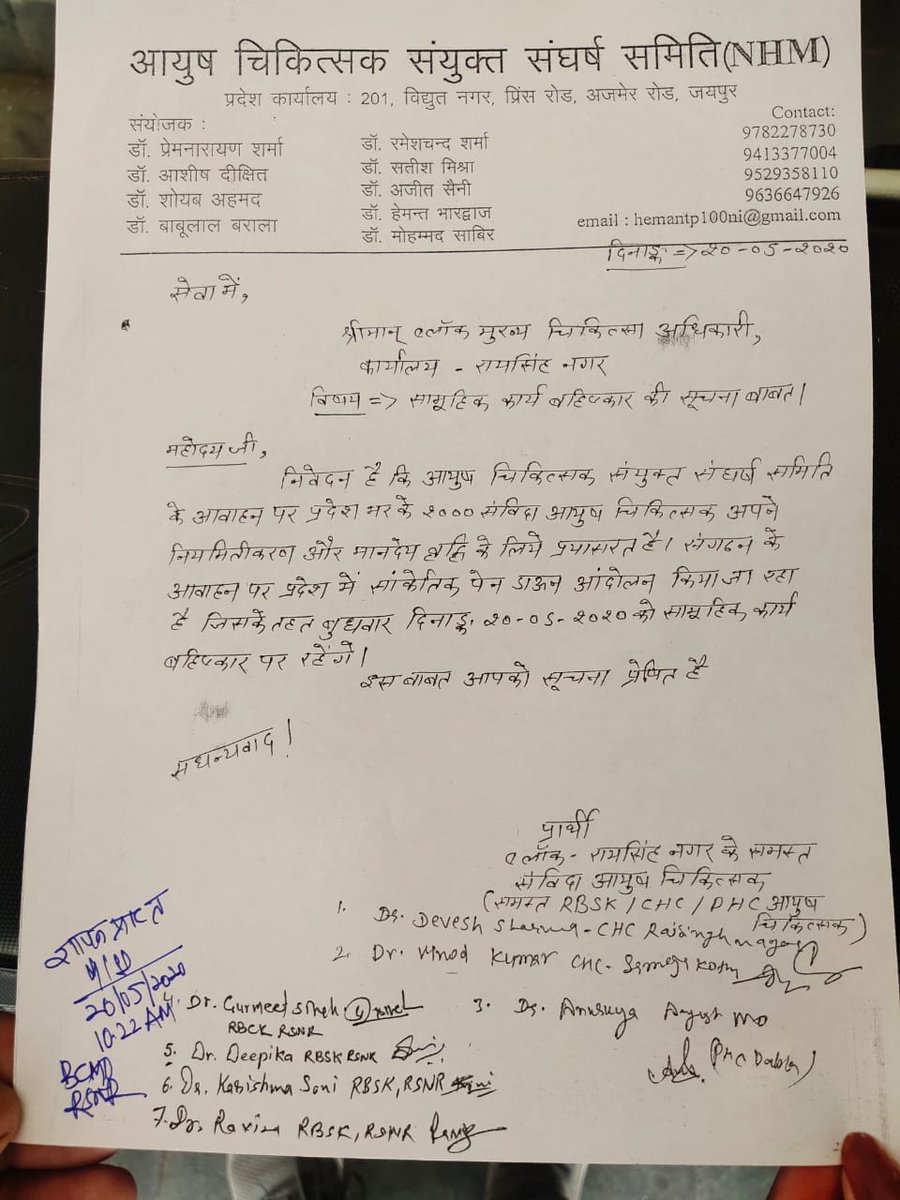 आयुष चिकित्सक संयुक्त संघर्ष समिति(NHM)
प्रदेश कार्यालय : 201, विद्युत नगर, प्रिंस रोड, अजमेर रोड, जयपुर
संयोजक :
डॉ. प्रेमनारायण शर्मा
डॉ. आशीष दीक्षित
डॉ. शोयब अहमद
डॉ. बाबूलाल बराला
डॉ. रमेशचन्द शर्मा
डॉ. सतीश मिश्रा
डॉ. अजीत सैनी
डॉ. हेमन्त भारद्वाज
डॉ. मोहम्मद साबिर
Contact:
9782278730
9413377004
9529358110
9636647926
email : hemantp100ni@gmail.com
दिनाङ्क => २०-०५-२०२०
सेवा में,
श्रीमान् ब्लॉक मुख्य चिकित्सा अधिकारी,
कार्यालय - रायसिंह नगर
विषय => सामूहिक कार्य बहिष्कार की सूचना बाबत।
महोदय जी,
निवेदन है कि आयुष चिकित्सक संयुक्त संघर्ष समिति
के आवाहन पर प्रदेश भर के २००० संविदा आयुष चिकित्सक अपने
नियमितीकरण और मानदेय वृद्धि के लिये प्रयासरत है। संगठन के
आवाहन पर प्रदेश में सांकेतिक पेन डाऊन आंदोलन किया जा रहा
है जिसके तहत बुधवार दिनाङ्क २०-०५-२०२० को सामूहिक कार्य
बहिष्कार पर रहेंगे।
इस बाबत आपको सूचना प्रेषित है
सधन्यवाद!
प्रार्थी
ब्लॉक - रायसिंह नगर के समस्त
संविदा आयुष चिकित्सक
(समस्त RBSK/CHC/PHC आयुष
चिकित्सक)
1. Dr. Devesh Sharma - CHC Raisinghnagar
2. Dr. Vinod Kumar CHC-
3. Dr. Anusuya Ayush MO
(PHC Dabla)
4. Dr. Gurmeet Singh
RBCK RSNR
5. Dr. Deepika RBSK RSNR
6. Dr. Karishma Soni RBSK, RSNR
7. Dr. Ravina RBSK, RSNR
प्राप्त
20/05/2020
10:22 AM
BCMO
RSNR